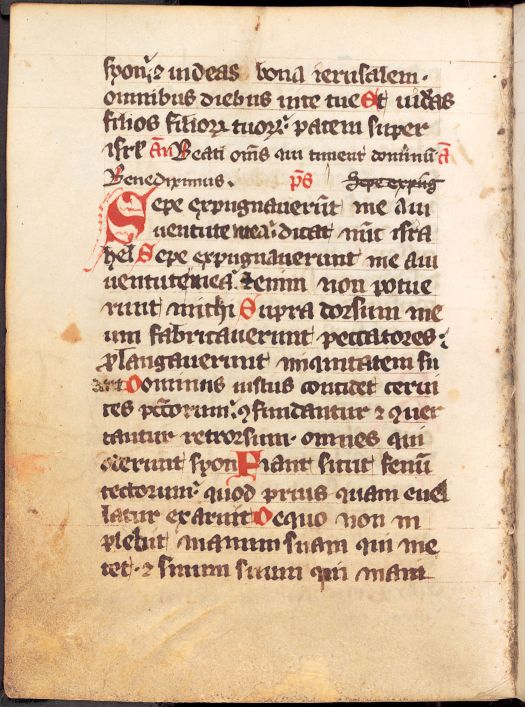 syon et uideas bona ierusalem.
omnibus diebus uite tue Et uideas
filios filiorum tuorum. pacem super
isrl an Beati omnes qui timent dominum a
Benediximus. ps Sepe expug
Sepe expugnauerunt me a iu
uentute mea. dicat nunc isra
hel Sepe expugnauerunt me a iu
uentute mea. etenim non potue
runt michi Supra dorsum me
um fabricauerunt peccatores.
prolangauerunt iniquitatem su
am Dominus iustus concidet cerui
ces peccatorum. confundantur et conuer
tantur retrorsum. omnes qui
oderunt syon Fiant sicut fenum
tectorum. quod prius quam euel
latur exaruit De quo non in
plebit manum suam qui me
tet. et sinum suum qui mani